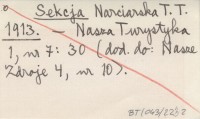 Sekcja Narciarska T. T.
1913. — Nasza Turystyka
1, nr 7: 30 (dod. do: Nasze
Zdroje 4, nr 10).